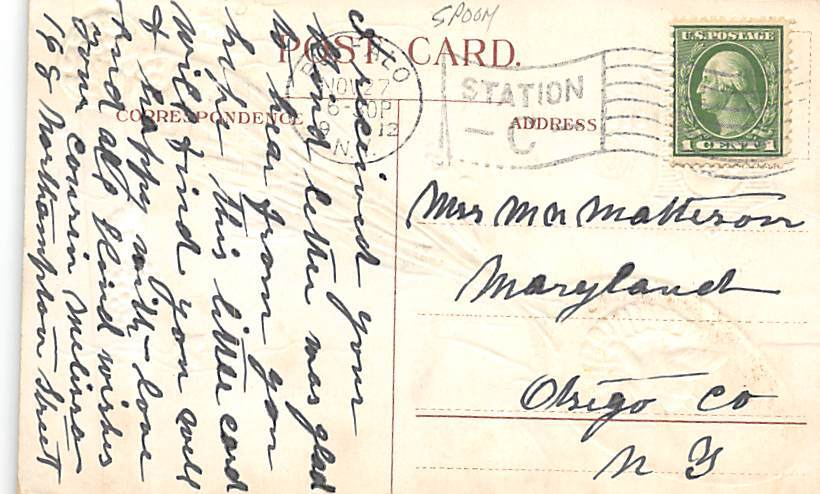 SPOOM
POST CARD.
CORRESPONDENCE
ADDRESS
U.S. POSTAGE
1 CENT 1
BUFFALO
NOV 27
6-30P
1912
N.Y.
STATION
C
I received your
kind letter was glad
to hear from you
hope this little card
will find you well
& happy with love
and all kind wishes
your cousin Melissa
168 Northampton Street
Mrs M N Matteson
Maryland
Otsego Co
N Y